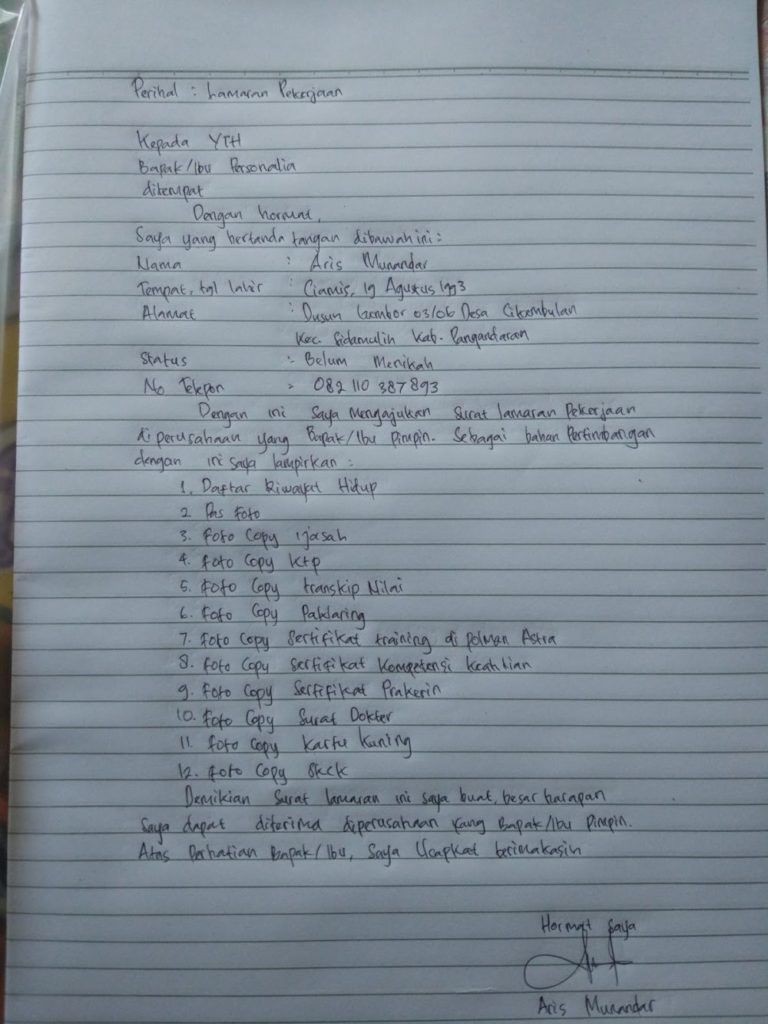 Perihal : Lamaran Pekerjaan
Kepada YTH
Bapak/Ibu Personalia
ditempat
Dengan hormat,
Saya yang bertanda tangan dibawah ini :
Nama : Aris Munandar
Tempat, tgl lahir : Ciamis, 19 Agustus 1993
Alamat : Dusun Gembor 03/06 Desa Cikembulan
Kec. Sidamulih Kab. Pangandaran
Status : Belum Menikah
No Telepon : 082 110 387 893
Dengan ini Saya Mengajukan Surat lamaran Pekerjaan
diperusahaan yang Bapak/Ibu Pimpin. Sebagai bahan Pertimbangan
dengan ini saya lampirkan :
1. Daftar Riwayat Hidup
2. Pas Foto
3. Foto Copy ijasah
4. Foto Copy Ktp
5. Foto Copy transkip Nilai
6. Foto Copy Paklaring
7. Foto Copy Sertifikat training di polman Astra
8. Foto Copy Sertifikat Kompetensi Keahlian
9. Foto Copy Sertifikat Prakerin
10. Foto Copy Surat Dokter
11. Foto Copy Kartu Kuning
12. Foto Copy Skck
Demikian Surat lamaran ini saya buat, besar harapan
Saya dapat diterima diperusahaan yang Bapak/Ibu Pimpin.
Atas Perhatian Bapak/Ibu, Saya Ucapkat terimakasih
Hormat Saya
Aris Munandar